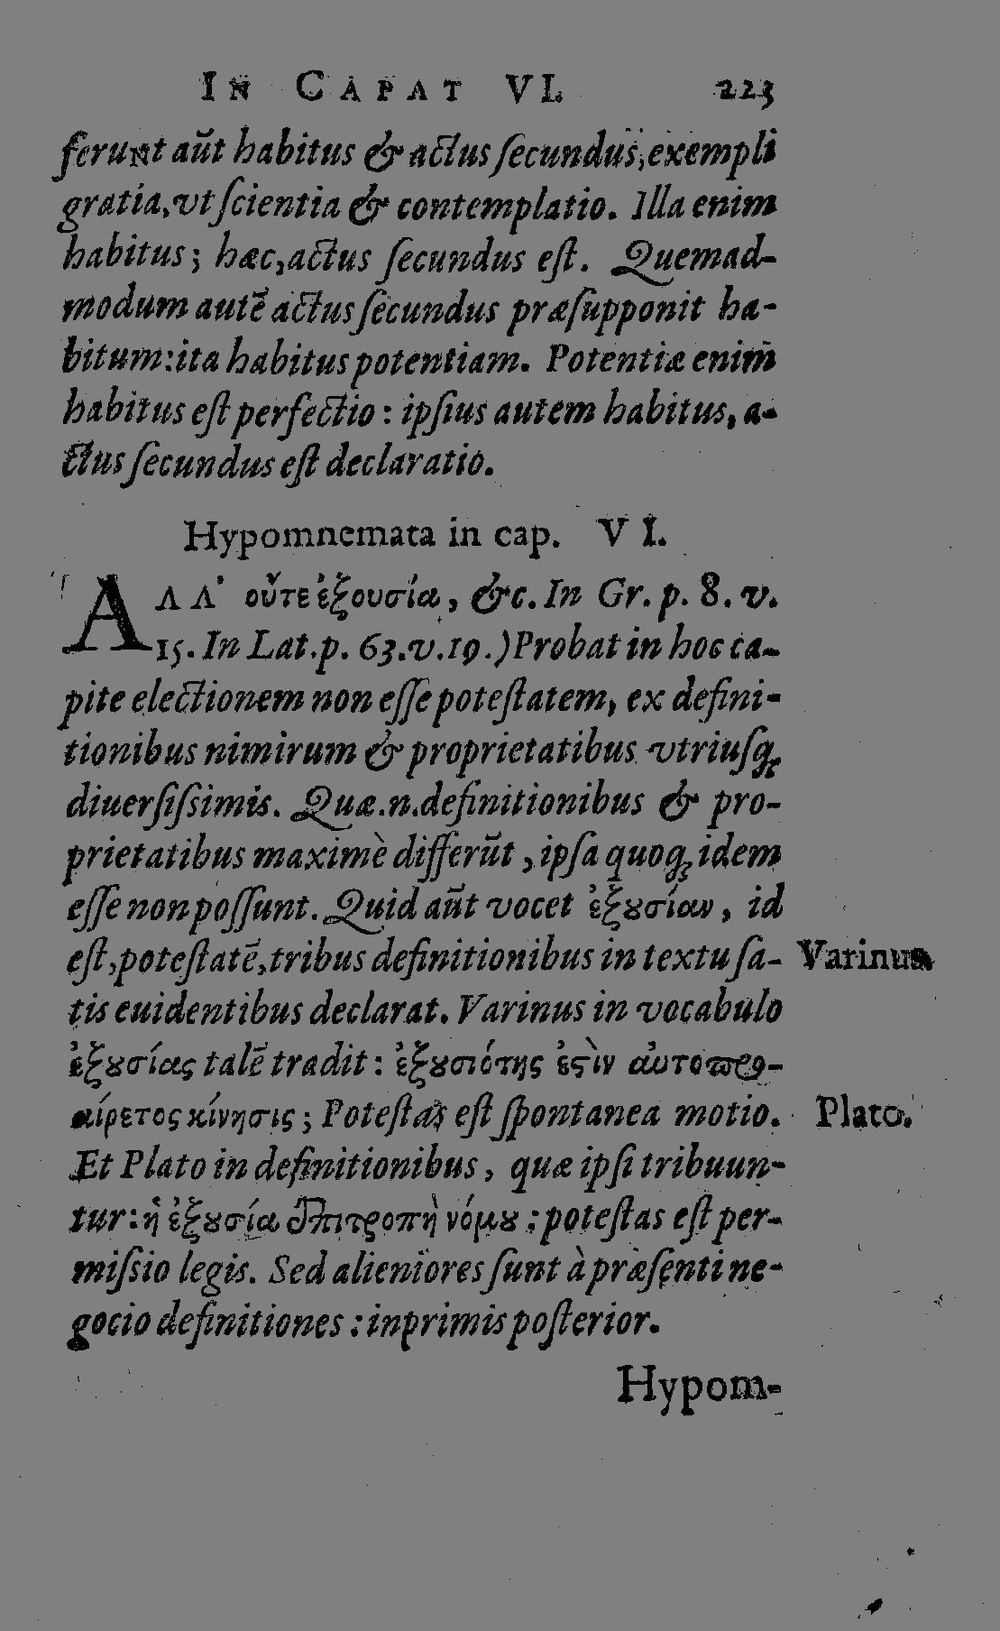 IN CAPAT VI. 223
ferunt aūt habitus & actus ſecundus, exempli
gratia, vt ſcientia & contemplatio. Illa enim
habitus; hæc, actus ſecundus eſt. Quemad-
modum autē actus ſecundus præſupponit ha-
bitum: ita habitus potentiam. Potentiæ enim
habitus eſt perfectio: ipſius autem habitus, a-
ctus ſecundus eſt declaratio.
Hypomnemata in cap. VI.
ΑΛΛ' οὔτε ἐξουσία, &c. In Gr. p. 8. v.
15. In Lat. p. 63. v. 19.) Probat in hoc ca-
pite electionem non eſſe poteſtatem, ex defini-
tionibus nimirum & proprietatibus vtriuſq;
diuerſiſsimis. Quæ.n.definitionibus & pro-
prietatibus maximè differūt, ipſa quoq; idem
eſſe non poſſunt. Quid aūt vocet ἐξȣσίαν, id
eſt, poteſtatē, tribus definitionibus in textu ſa-
Varinus
tis euidentibus declarat. Varinus in vocabulo
ἐξȣσίας talē tradit: ἐξȣσιότης ἐϛὶν αὐτοπρο-
αίρετος κίνησις; Poteſtas eſt ſpontanea motio.
Plato.
Et Plato in definitionibus, quæ ipſi tribuun-
tur: ἡ ἐξȣσία ἐπιτροπὴ νόμȣ: poteſtas eſt per-
miſsio legis. Sed alieniores ſunt à præſenti ne-
gocio definitiones: inprimis poſterior.
Hypom-